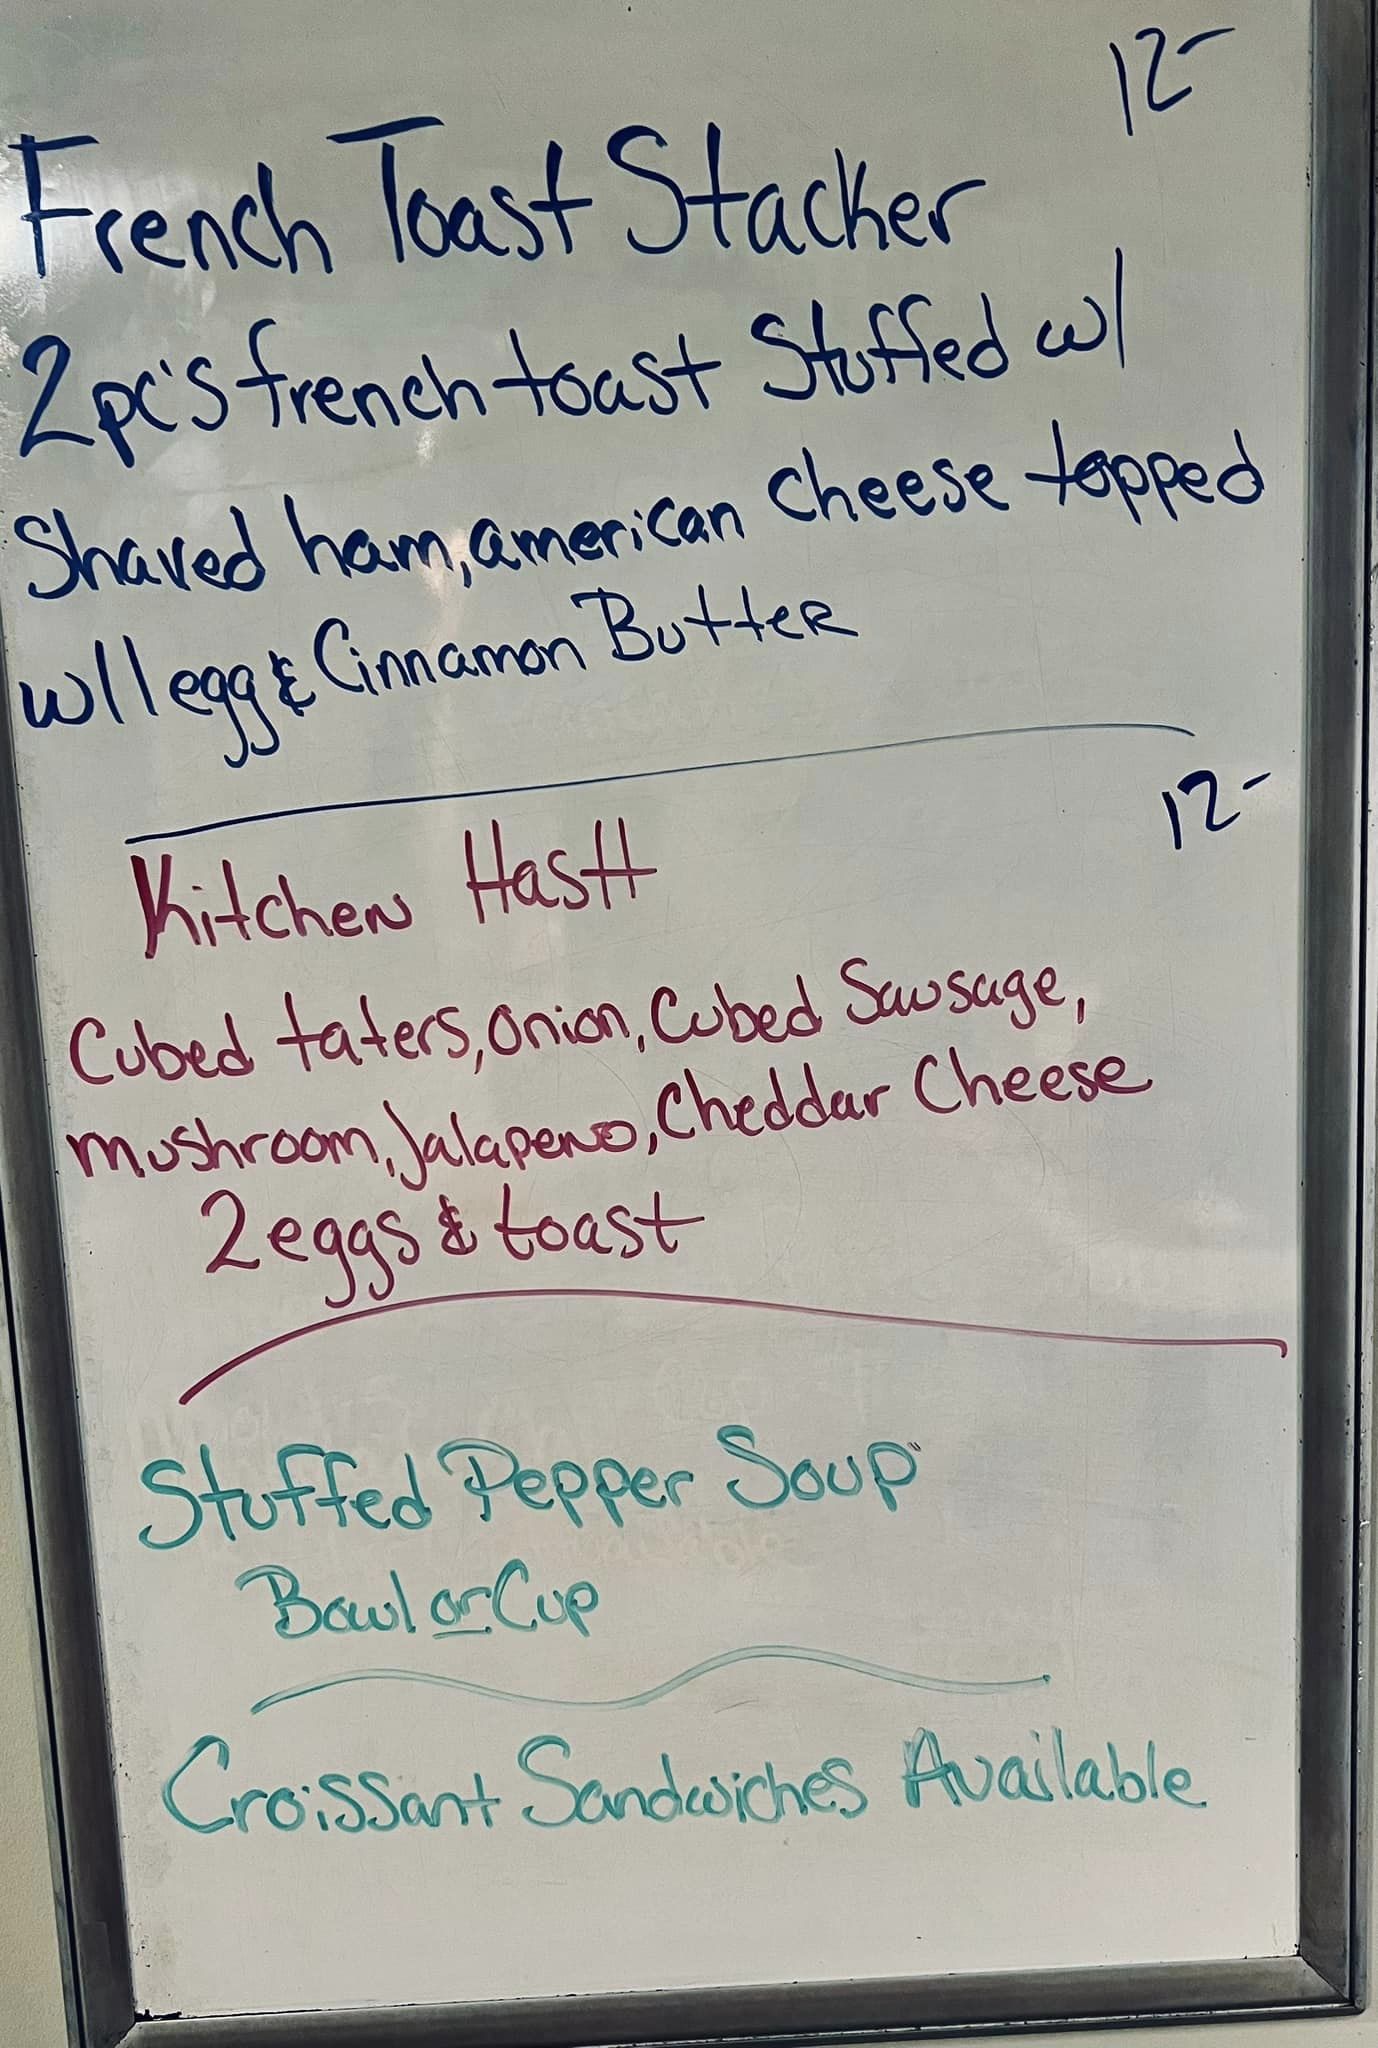 12-
French Toast Stacker
2pc's french toast Stuffed w/
Shaved ham, american cheese topped
w/ 1 egg & Cinnamon Butter
12-
Kitchen Hash
Cubed taters, onion, Cubed Sausage,
mushroom, Jalapeno, Cheddar Cheese
2 eggs & toast
Stuffed Pepper Soup
Bowl or Cup
Croissant Sandwiches Available